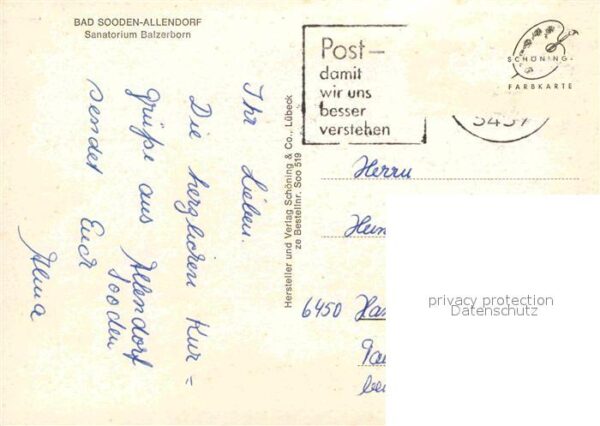 BAD SOODEN-ALLENDORF
Sanatorium Balzerborn
Post-
damit
wir uns
besser
verstehen
SCHÖNING-
FARBKARTE
3437
Ihr Lieben.
Die herzlichen Kur=
grüße aus Allendorf
Sooden
sendet Euch
Alma
Hersteller und Verlag Schöning & Co., Lübeck
ze Bestellnr. Soo 519
Herrn
6450
privacy protection
Datenschutz